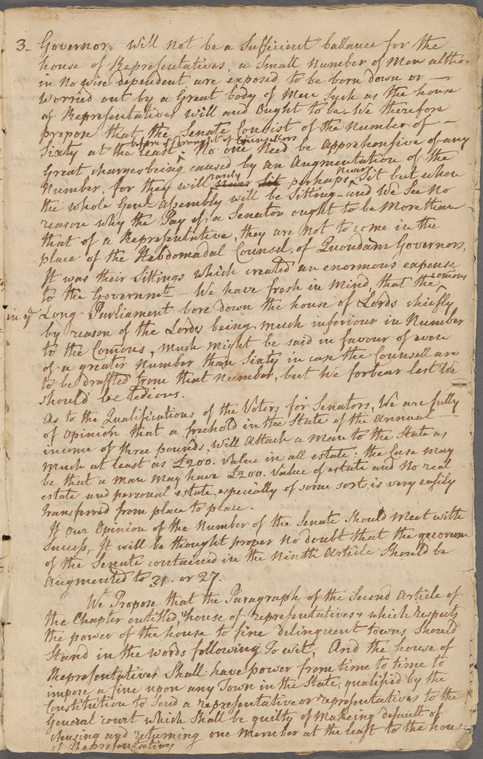 3. Governor. Will not be a Sufficient ballance for the
house of Representatives, a Small Number of Men altho.
in No wise dependent are exposed to be born down or
worried out by a Great body of Men Such as the house
of Representatives Will and Ought to be. We therefore
propose that the Senate Consist of the Number of
Sixty at the least. No one Need be Apprehensive of any
before of Counsellors
Great charges being caused by an Augmentation of the
Number, for they will rarely sit perhaps Never Sit but when
the whole Genl Assembly will be Sitting and We See No
reason why the Pay of a Senator ought to be More than
that of a Representative, they are Not to come in the
place of the Hebdomadal Counsel of Quondam Governors.
It was their Sittings which created an enormous expense
to the Governmt. We have fresh in Mind that the Comons
in ye Long-Parliament bore down the house of Lords chiefly
by reason of the Lords being much inferiour in Number
to the Comons, Much might be said in favour of even
of a greater Number than Sixty in case the Counsell are
to be drafted from that Number, but We forbear lest We
Should be tedious.
As to the Qualifications of the Voters for Senators, We are fully
of Opinion that a freehold in the State of the Annual
income of three pounds, Will Attach a Man to the State as
Much at least as £200. Value in all estate: the Case may
be that a man May have £200. Value of estate and No real
estate and personal estate, especially of some sort, is very easily
transferred from place to place.
If our Opinion of the Number of the Senate Should Meet with
Success, It will be thought proper No doubt that the quorum
of the Senate contained in the Ninth Article Should be
Augmented to 31. or 27.
We Propose that the Paragraph of the Second Article of
the Chapter entitled, "house of representatives" which respects
the power of the house to fine delinquent towns Should
Stand in the words following to wit, And the house of
Representatives Shall have power from time to time to
impose a fine upon any Town in the State, qualified by the
Constitution to Send a representative or representatives to the
General court which Shall be guilty of Makeing default of
chusing and returning one Member at the least to the house
of Representatives